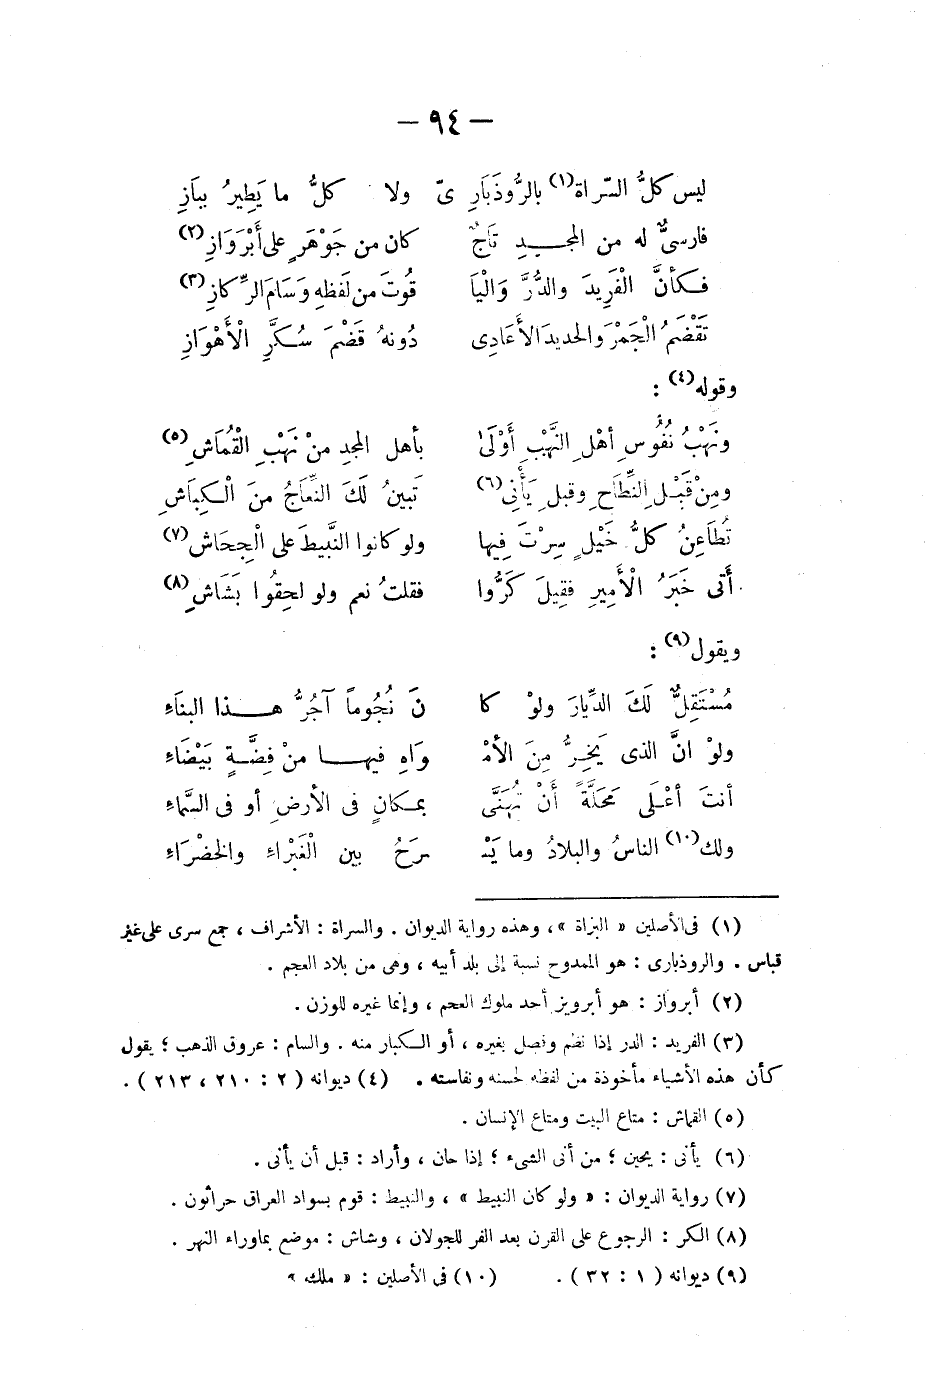 — ٩٤ —
ليس كلُّ السّراة(١) بالرُّوذَبَارِ ىّ ولا كلُّ ما يَطِيرُ ببَازِ
فارسىٌّ له من المجـيدِ تَاجٌ كان من جَوْهَرٍ على أَبْرَوَازِ(٢)
فكأنَّ الْفَرِيدَ والدُّرَّ وَالْيَا قُوتَ من لَفظهِ وَسَامَ الرِّكازِ(٣)
تَقْضَمُ الْجَمْرَ والحديدَ الأَعَادِى دُونهُ قَضْمَ سُكَّرِ الْأَهْوَازِ
وقوله(٤) :
ونَهْبُ نُفُوسِ أهْلِ النَّهْبِ أَوْلَىٰ بأهل المجدِ منْ نَهْبِ الْقُمَاشِ(٥)
ومِنْ قَبْلِ النِّطَاحِ وقبلِ يَأْنِى(٦) تَبينُ لَكَ النِّعَاجُ منَ الْكِبَاشِ
تُطَاعِنُ كلُّ خَيْلٍ سِرْتَ فِيها ولو كانوا النَّبيطَ على الْجِحَاشِ(٧)
أَتى خَبَرُ الْأَمِيرِ فقِيلَ كَرُّوا فقلتُ نعم ولو لحِقُوا بَشَاشِ(٨)
ويقول(٩) :
مُسْتَقِلٌّ لَكَ الدِّيَارَ ولوْ كا نَ نُجُوماً آجُرُّ هـذا البنَاءِ
ولوْ انَّ الذى يَخِرُّ مِنَ الأمْـ وَاهِ فيهـا منْ فِضَّةٍ بَيْضَاءِ
أنتَ أعْلَى مَحَلَّةً أَنْ تُهَنَّى بمكانٍ فى الأرضِ أو فى السَّماءِ
ولك(١٠) الناسُ والبلادُ وما يَسْـ ـرَحُ بين الْغَبْرَاءِ والخضْرَاءِ
(١) فى الأصلين « البزاة »، وهذه رواية الديوان . والسراة : الأشراف ، جمع سرى على غير
قياس . والروذبارى : هو الممدوح نسبة إلى بلد أبيه ، وهى من بلاد العجم .
(٢) أبرواز : هو أبرويز أحد ملوك العجم ، وإنما غيره للوزن .
(٣) الفريد : الدر إذا نظم وفصل بغيره ، أو الكبار منه . والسام : عروق الذهب ؛ يقول
كأن هذه الأشياء مأخوذة من لفظه لحسنه ونفاسته . (٤) ديوانه ( ٢ : ٢١٠ ، ٢١٣ ) .
(٥) القماش : متاع البيت ومتاع الإنسان .
(٦) يأنى : يحين ؛ من أنى الشىء ؛ إذا حان ، وأراد : قبل أن يأنى .
(٧) رواية الديوان : « ولو كان النبيط » ، والنبيط : قوم بسواد العراق حراثون .
(٨) الكر : الرجوع على القرن بعد الفر للجولان ، وشاش : موضع بماوراء النهر .
(٩) ديوانه ( ١ : ٣٢ ) . (١٠) فى الأصلين : « ملك »